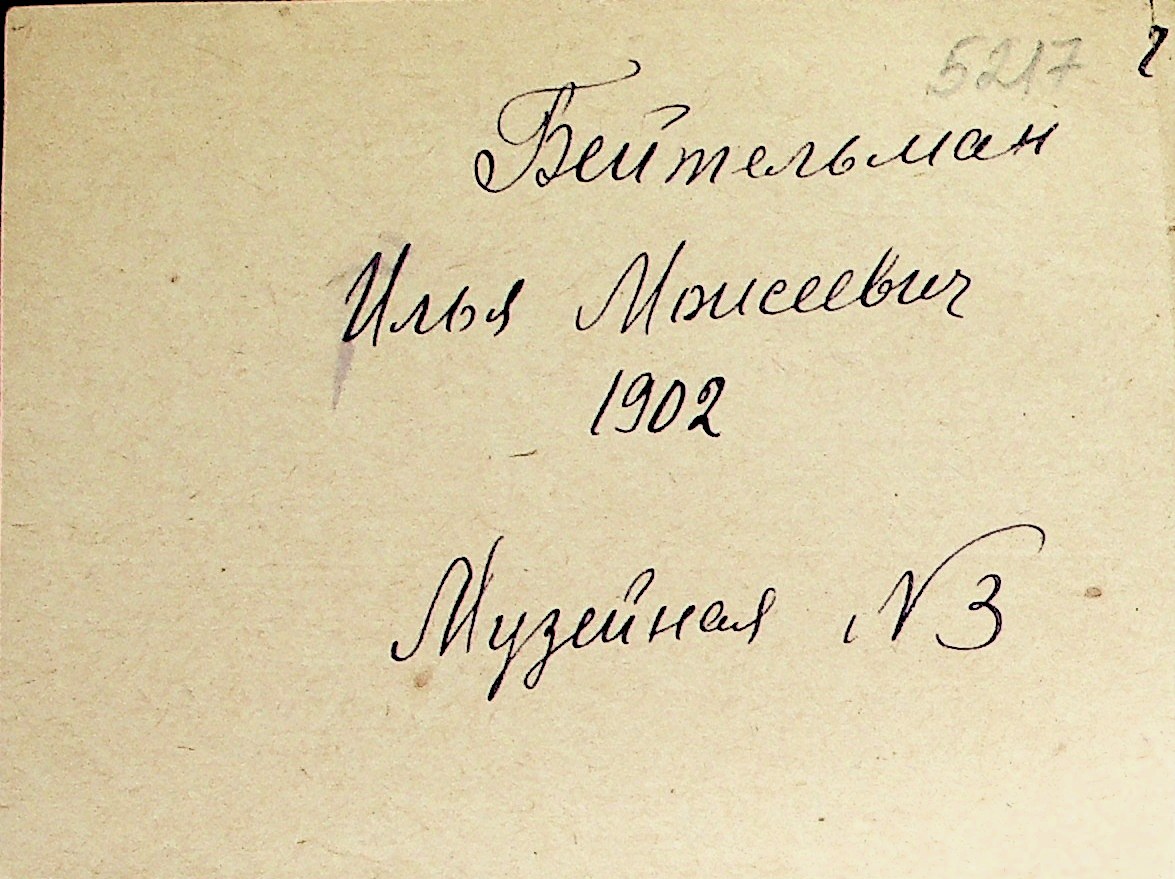 5217
Бейтельман
Илья Моисеевич
1902
Музейная N 3